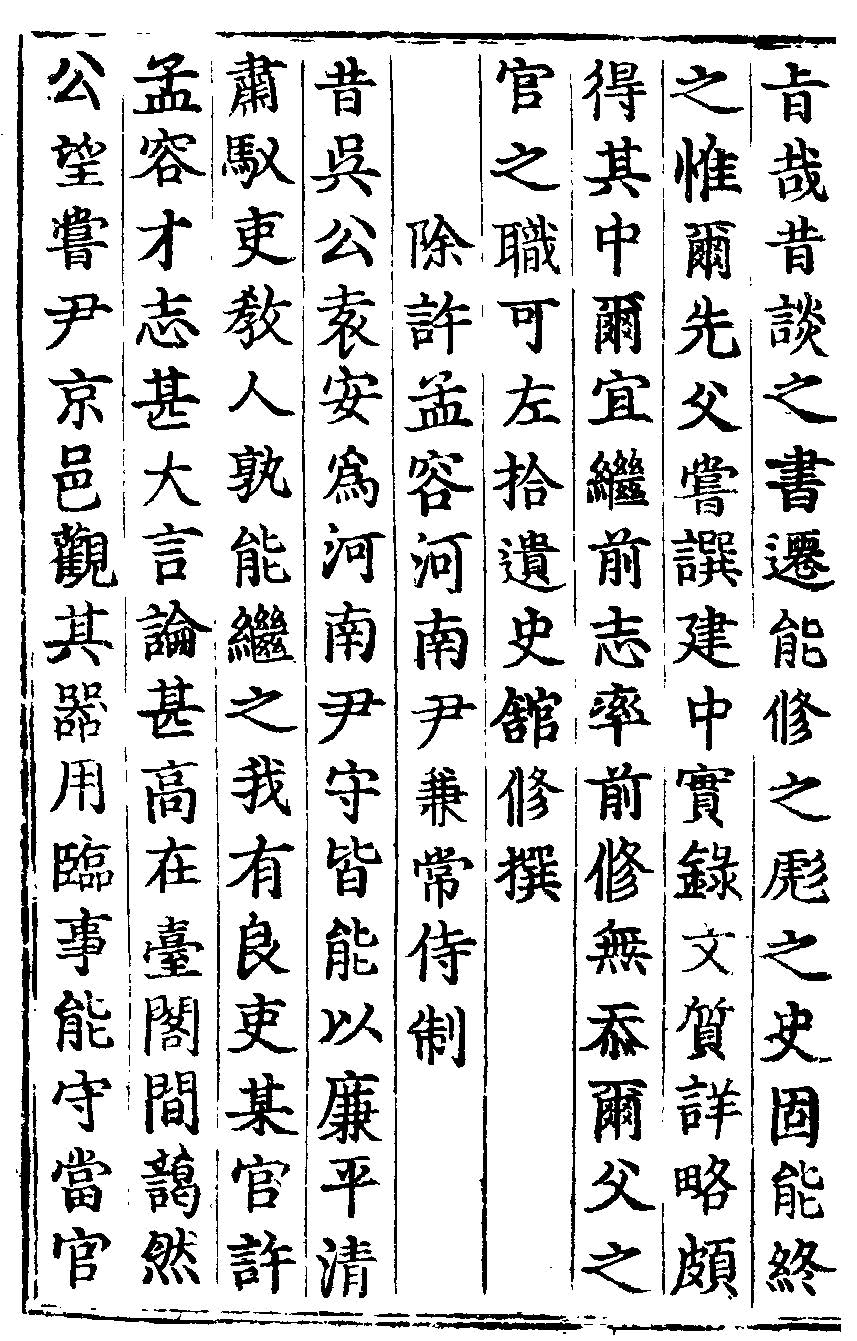 旨哉昔談之書遷能修之彪之史固能終
之惟爾先父嘗譔建中實錄文質詳略頗
得其中爾宜繼前志率前修無忝爾父之
官之職可左拾遺史舘修撰
除許孟容河南尹兼常侍制
昔吳公袁安爲河南尹守皆能以廉平清
肅馭吏教人孰能繼之我有良吏某官許
孟容才志甚大言論甚高在臺閣間藹然
公望嘗尹京邑觀其器用臨事能守當官